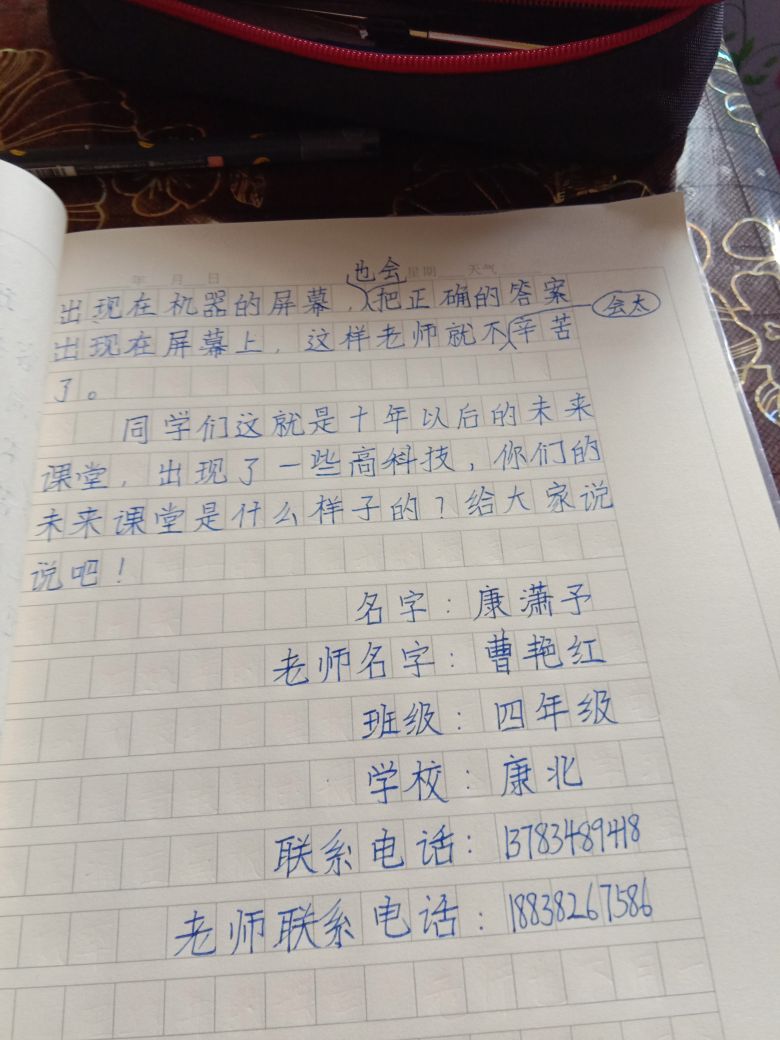 年 月 日 星期 天气
也会
出现在机器的屏幕，把正确的答案
会太
出现在屏幕上，这样老师就不辛苦
了。
同学们这就是十年以后的未来
课堂，出现了一些高科技，你们的
未来课堂是什么样子的？给大家说
说吧！
名字：康潇予
老师名字：曹艳红
班级：四年级
学校：康北
联系电话：13783489418
老师联系电话：18838267586